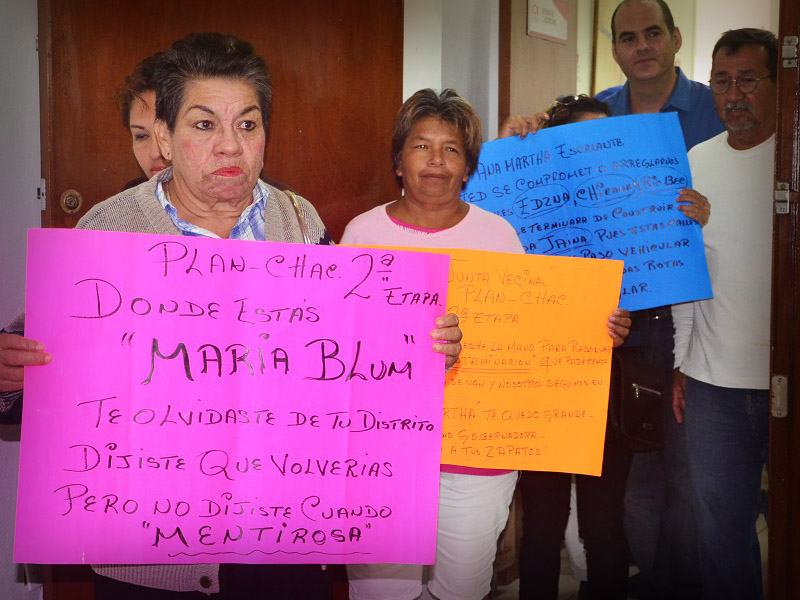 PLAN-CHAC. 2ª ETAPA.
DONDE ESTÁS
"MARIA BLUM"
TE OLVIDASTE DE TU DISTRITO
DIJISTE QUE VOLVERIAS
PERO NO DIJISTE CUANDO
"MENTIROSA"
JUNTA VECINAL
PLAN-CHAC.
2ª ETAPA
ECHE LA MANO PARA RESOLVER
TAMINACION" QUE PADECEMOS
SE VAN Y NOSOTROS SEGUIMOS EN
RTHA" TE QUEDO GRANDE
NO GOBERNADORA
A TUS ZAPATOS"
ANA MARTHA ESCALANTE
TED SE COMPROMETIO ARREGLARNOS
EDZNA, CHICANNA, RIO BEC
TERMINARA DE CONSTRUIR
DA JAINA PUES ESTAS CALLES
PASO VEHICULAR
DAS ROTAS
LIBRAR